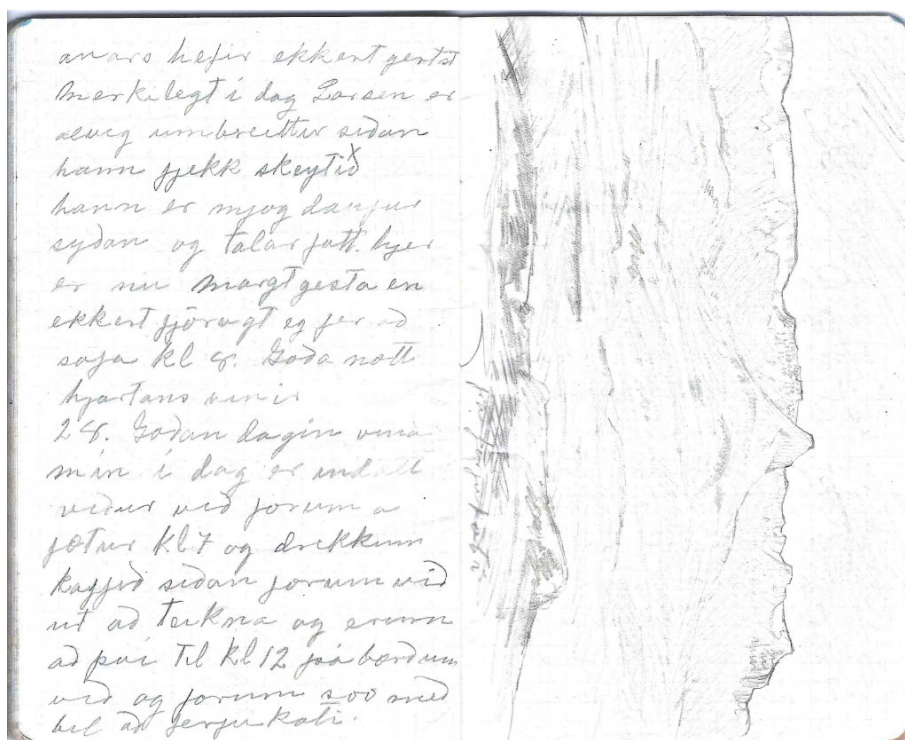 anars hefir ekkert gertst
merkilegt i dag Larsen er
alveg umbreittur siðan
hann fjekk skeytið
hann er mjog daufur
syðan og talar fátt. hjer
er nu margt gesta en
ekkert fjörugt eg fer að
sofa kl 8. Goða nott
hjartans vinir
28. Goðan dagin vina
min i dag er indælt
veður við forum a
fætur kl 7 og drekkum
kaffið siðan forum við
ut að teikna og erum
að þvi til kl 12 þá borðum
við og forum soo með
bil að ferjukoti.